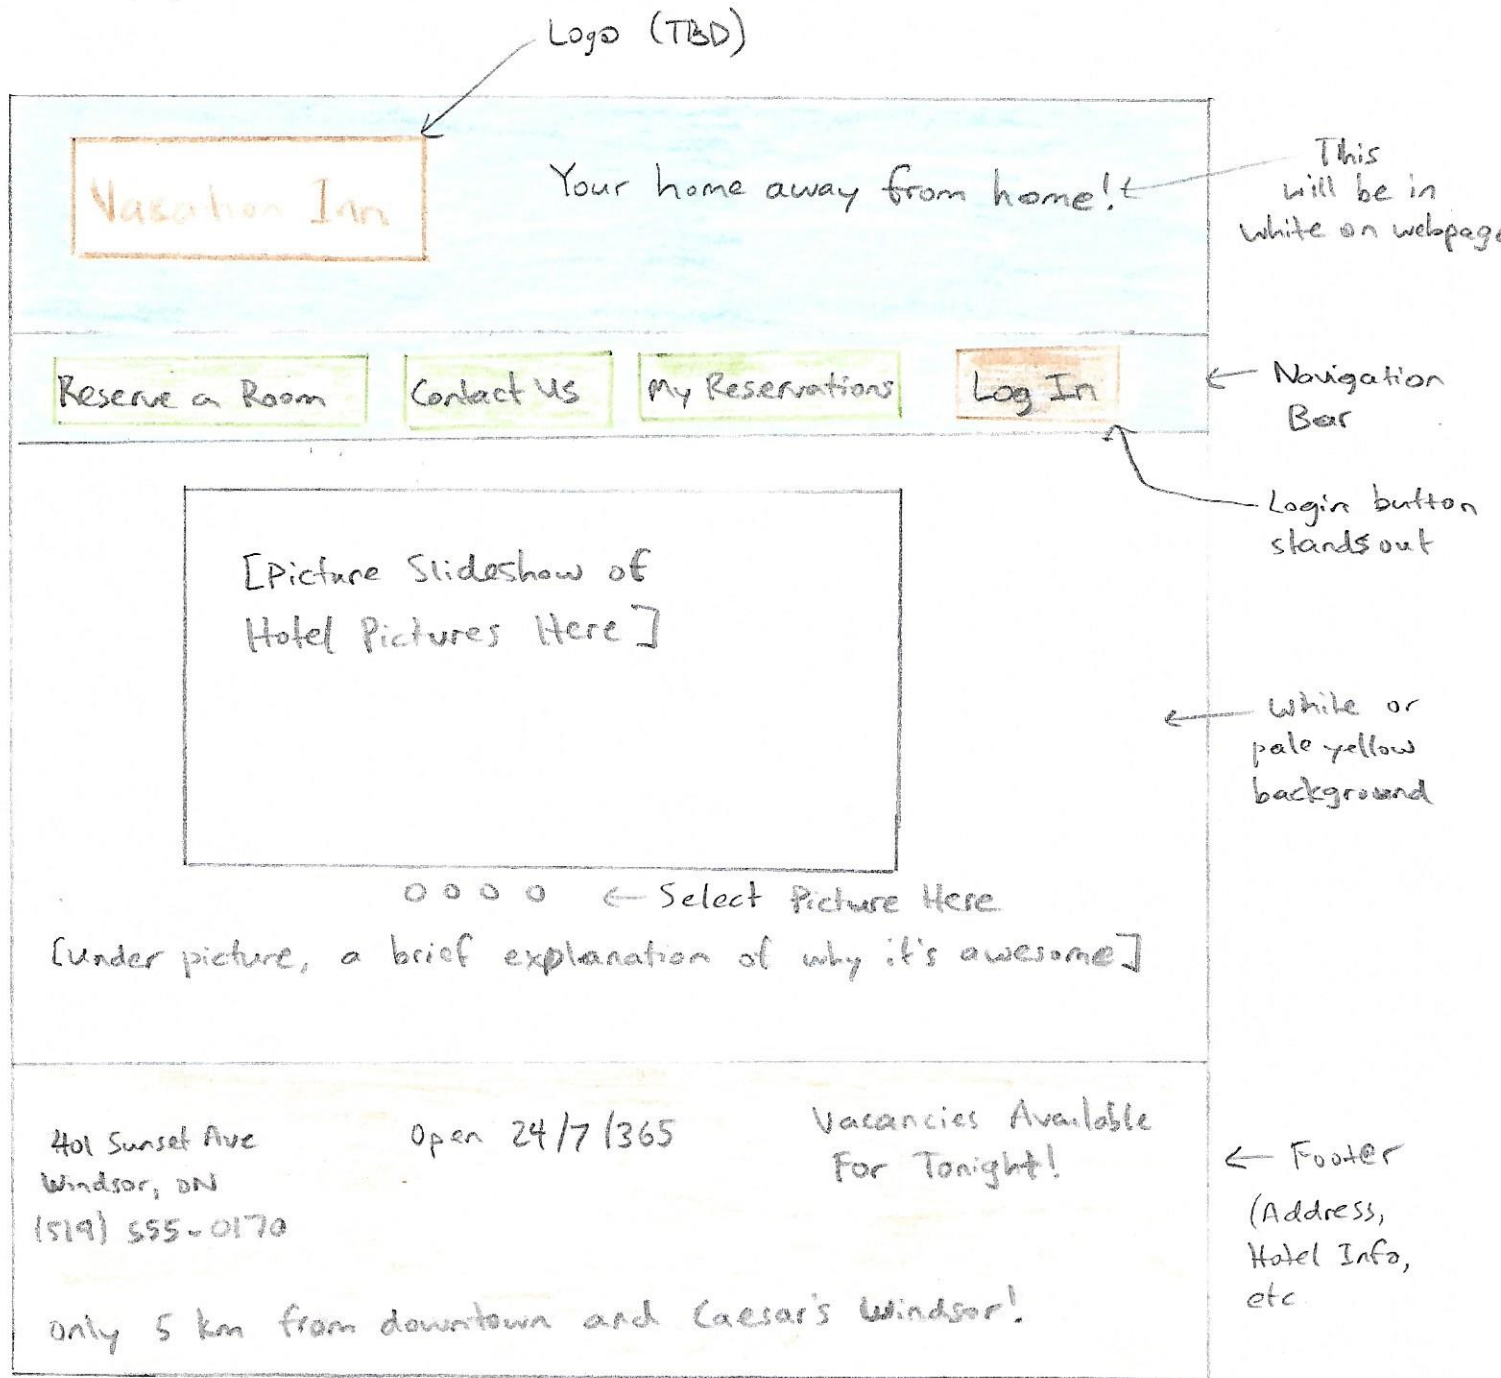 Logo (TBD)
Vasation Inn
Your home away from home!
This
will be in
white on webpage
Reserve a Room
Contact Us
My Reservations
Log In
Navigation
Bar
Login button
stands out
[Picture Slideshow of
Hotel Pictures Here]
White or
pale yellow
background
Select Picture Here
[Under picture, a brief explanation of why it's awesome]
401 Sunset Ave
Windsor, ON
(519) 555-0170
Open 24/7/365
Vacancies Available
For Tonight!
Footer
(Address,
Hotel Info,
etc
only 5 km from downtown and Caesar's Windsor!